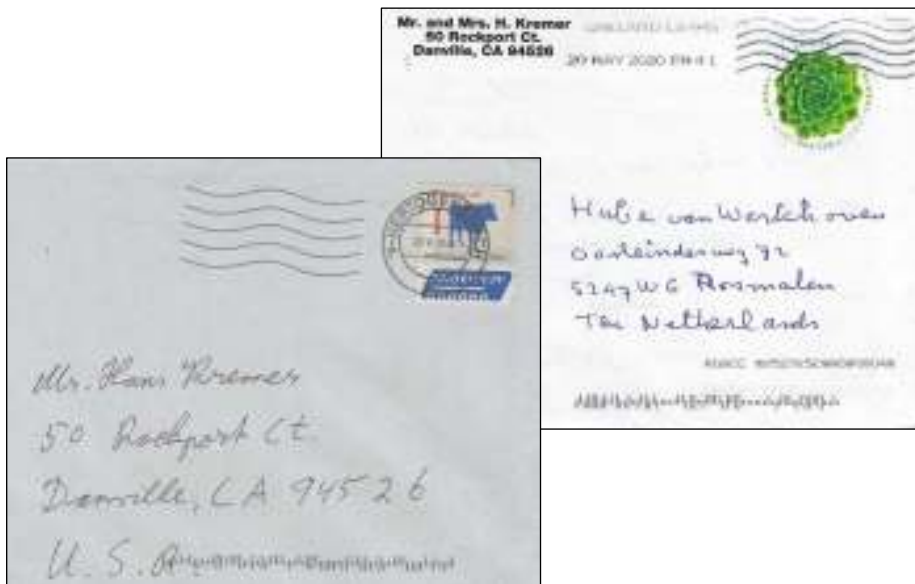 Mr. and Mrs. H. Kremer
50 Rockport Ct.
Danville, CA 94526
20 MAY 2020 PM 4 L
Huba van Werkhoven
Oosteinderweg 72
5247 WG Rosmalen
The Netherlands
Mr. Hans Kremer
50 Rockport Ct.
Danville, CA 94526
U. S. A.